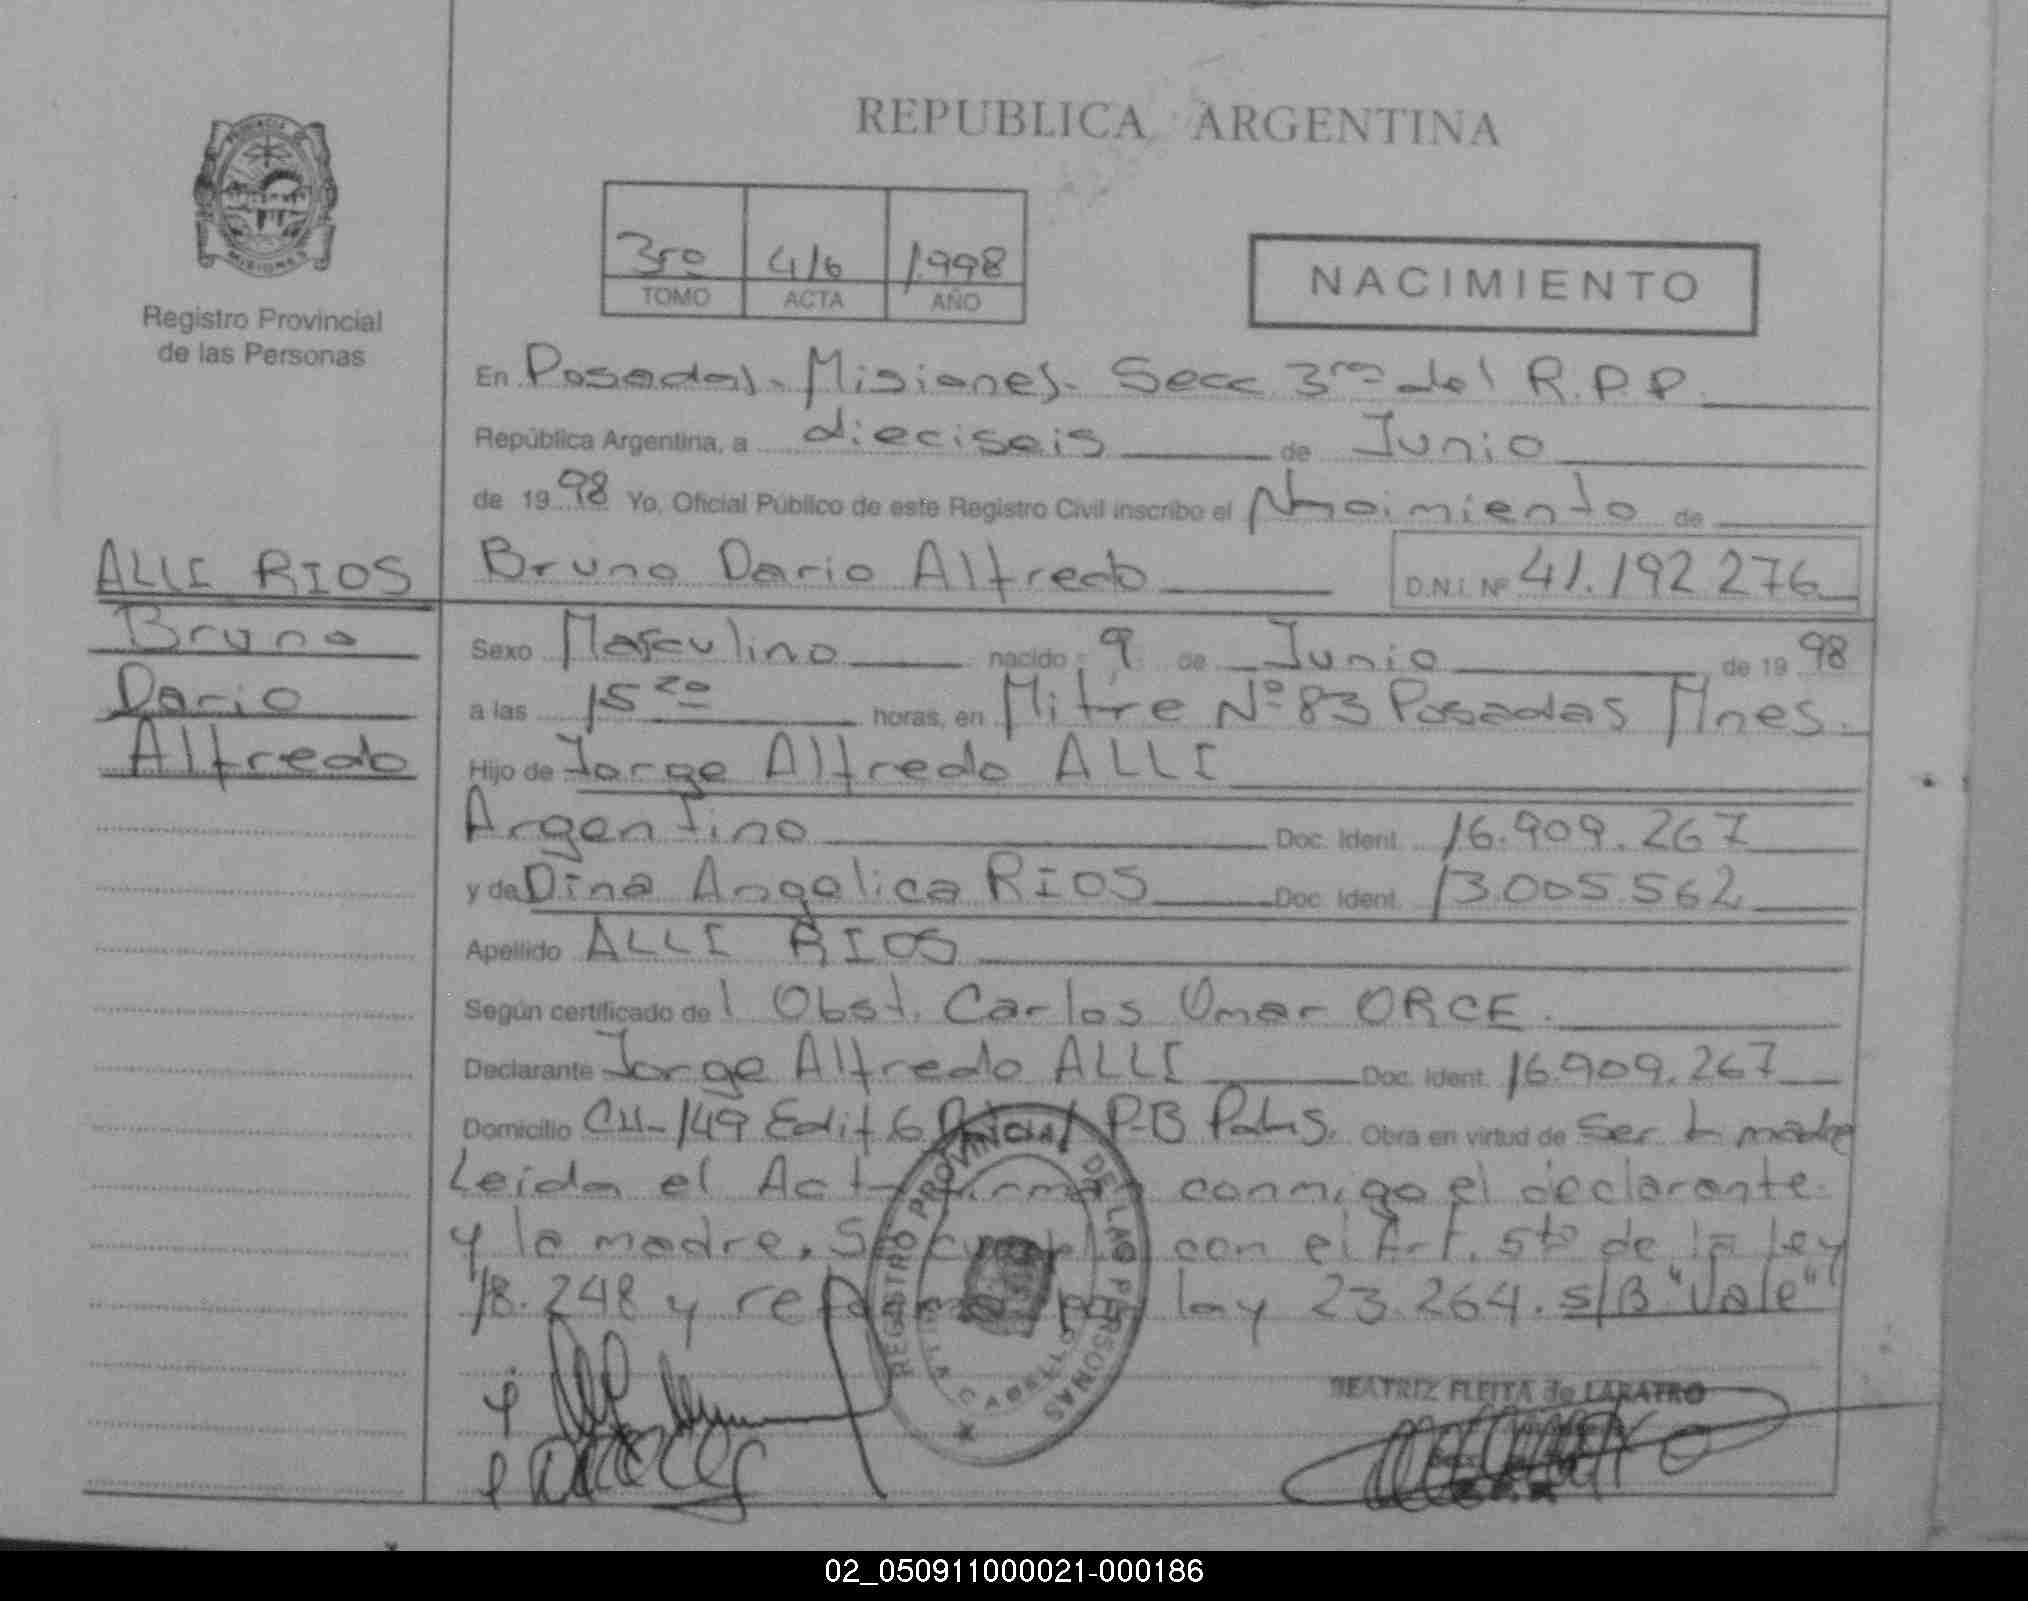 REPUBLICA ARGENTINA
PROVINCIA DE
MISIONES
Registro Provincial
de las Personas
3ro 416 1998
TOMO ACTA AÑO
NACIMIENTO
En Posadas - Misiones - Secc 3ra del R.P.P.
República Argentina, a dieciseis de Junio
de 1998 Yo, Oficial Público de este Registro Civil inscribo el Nacimiento de
Bruno Dario Alfredo D.N.I. Nº 41.192.276
ALLI RIOS
Bruno
Dario
Alfredo
Sexo Masculino nacido 9 de Junio de 1998
a las 15 20 horas, en Mitre Nº 83 Posadas Mnes.
Hijo de Jorge Alfredo ALLI
Argentino Doc. Ident. 16.909.267
y de Dina Angelica RIOS Doc. Ident. 13.005.562
Apellido ALLI RIOS
Según certificado del Obst. Carlos Omar ORCE.
Declarante Jorge Alfredo ALLI Doc. Ident. 16.909.267
Domicilio CH-149 Edif. 6 P-B Pdas. Obra en virtud de Ser L madre
Leida el Acta firman conmigo el declarante
y la madre. Se cumple con el Art. 5to de la Ley
18.248 y ref ley 23.264. S/B "Vale"
REGISTRO PROVINCIAL DE LAS PERSONAS
BEATRIZ FLEITA de LARATRO
02_050911000021-000186